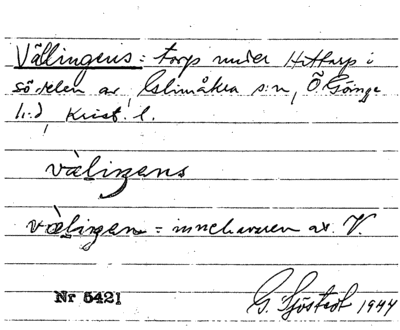 Vällingens: torp under Hittarp i
sö delen av Glimåkra s:n, Ö Göinge
h:d, Krist. l.
vàliŋens
vàliŋen = innehavaren av V.
Nr 5421 G. Sjöstedt 1944